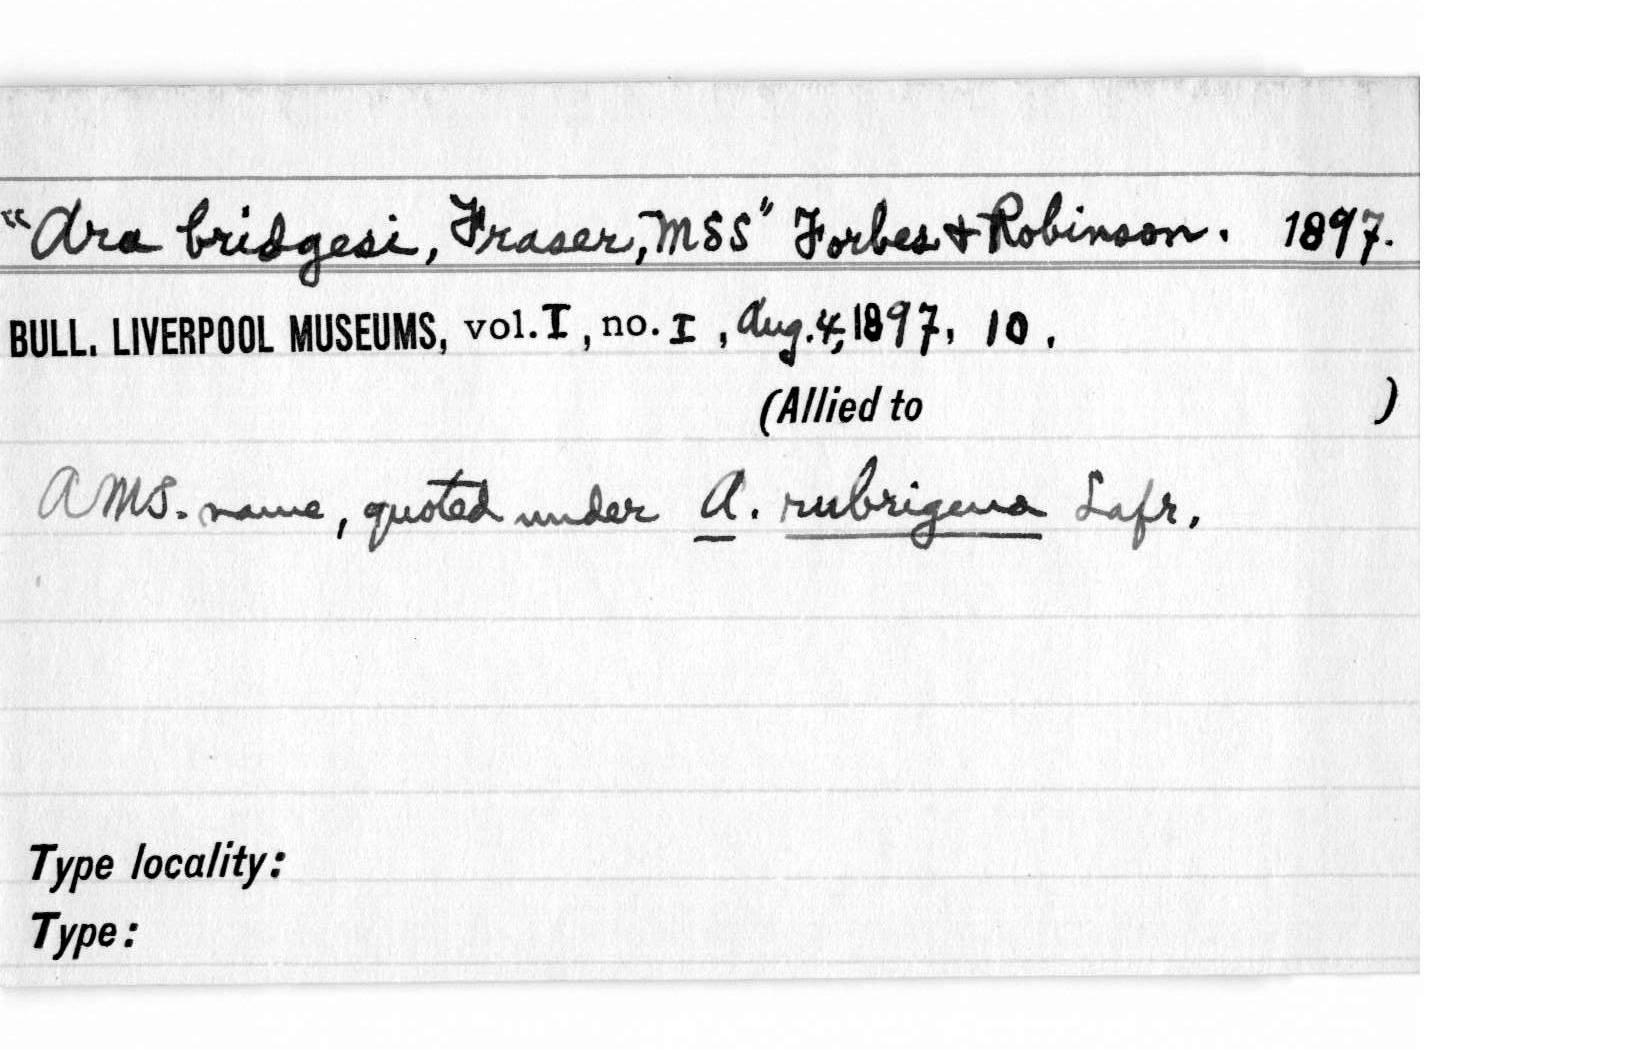 "Ara bridgesi, Fraser, MSS" Forbes & Robinson. 1897.
BULL. LIVERPOOL MUSEUMS, vol. I, no. I, Aug. 4, 1897, 10.
(Allied to )
A MS. name, quoted under A. rubrigena Lafr.
Type locality:
Type: